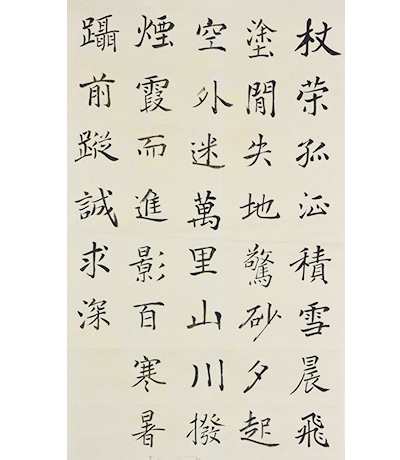 杖荣孤征積雪晨飛
塗閒失地驚砂夕起
空外迷萬里山川撥
煙霞而進影百寒暑
躡前蹤誠求深